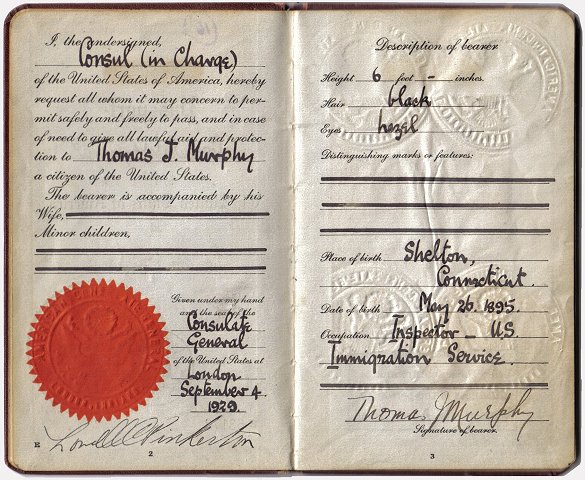 I, the undersigned,
Consul (in Charge)
of the United States of America, hereby
request all whom it may concern to per-
mit safely and freely to pass, and in case
of need to give all lawful aid and protec-
tion to Thomas J. Murphy
a citizen of the United States.
The bearer is accompanied by his
Wife,
Minor children,
Given under my hand
and the seal of the
Consulate
General
of the United States at
London
September 4.
1929.
Lowell C Pinkerton
E
2
Description of bearer
Height 6 feet - inches.
Hair black
Eyes hazel
Distinguishing marks or features:
Place of birth Shelton,
Connecticut.
Date of birth May 26. 1895.
Occupation Inspector - U.S.
Immigration Service.
Thomas J Murphy
Signature of bearer.
3